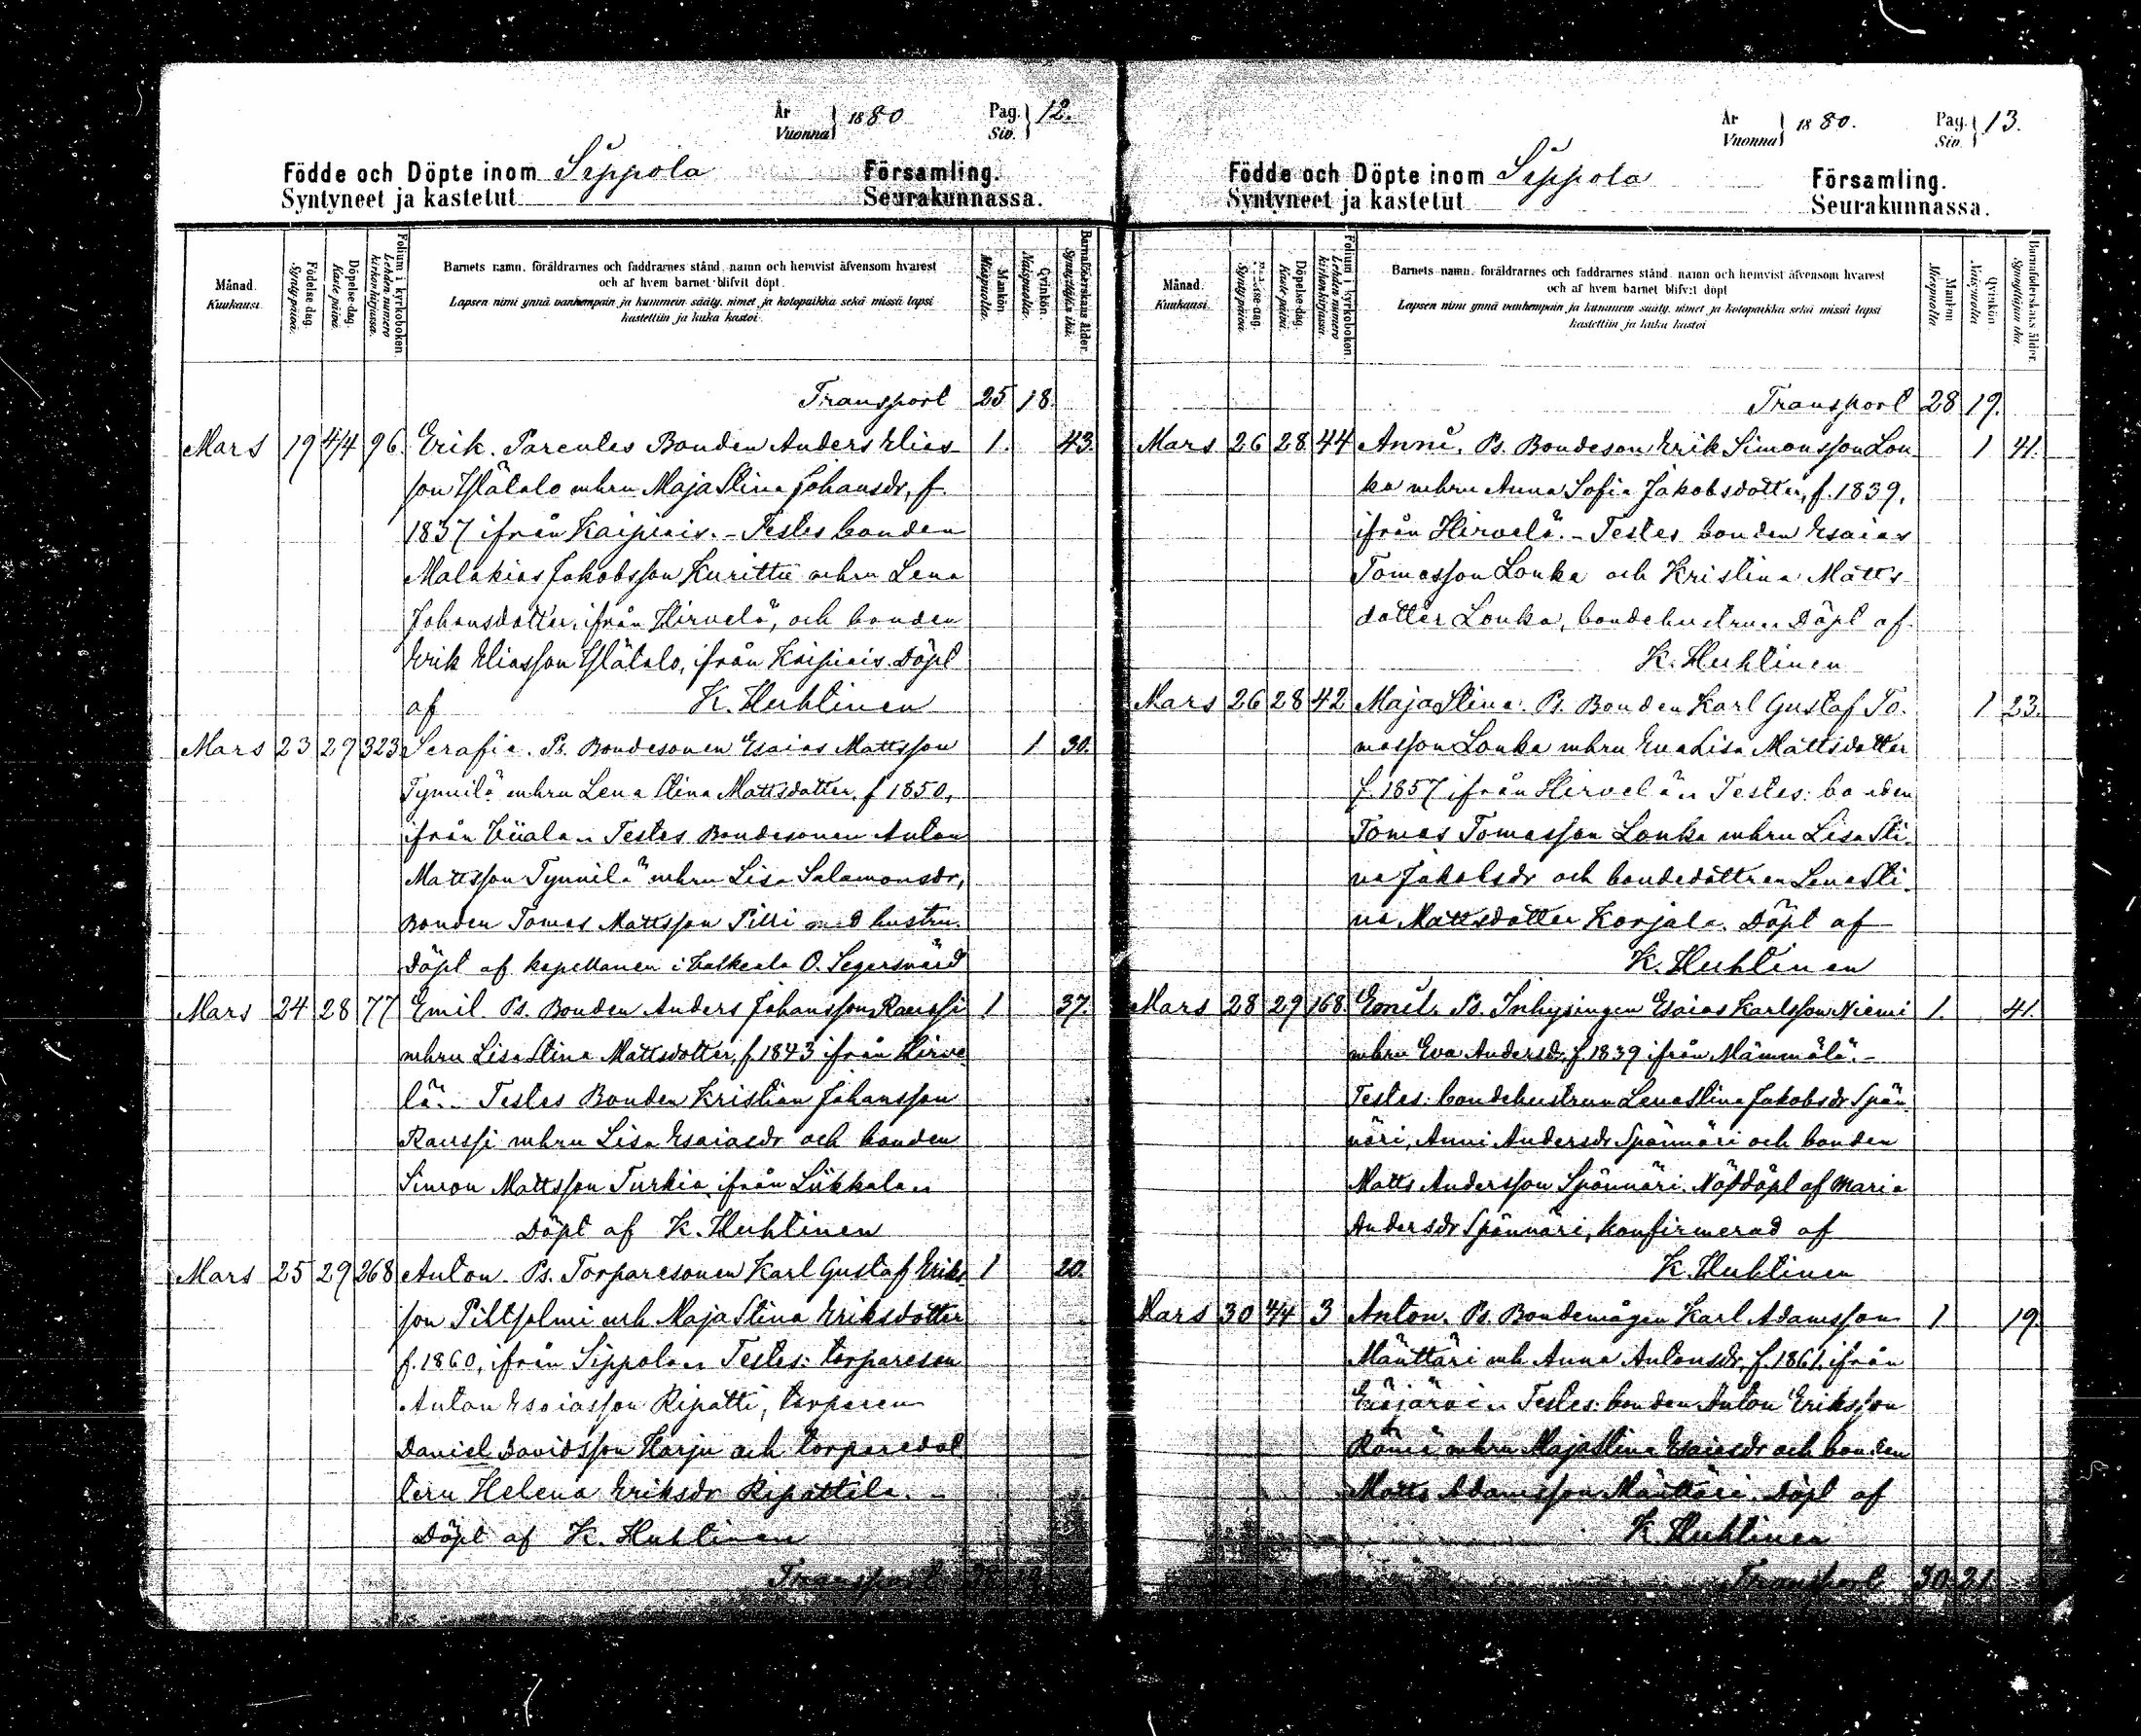 År
Vuonna } 1880
Pag.
Siv. } 12.
Födde och Döpte inom Sippola Församling.
Syntyneet ja kastetut Seurakunnassa.
Månad.
Kuukausi.
Födelse-dag.
Synty-päivä.
Döpelse-dag.
Kaste-päivä.
Folium i kyrkoboken.
Lehden numero
kirkonkirjassa.
Barnets namn, föräldrarnes och faddrarnes stånd, namn och hemvist äfvensom hvarest
och af hvem barnet blifvit döpt.
Lapsen nimi ynnä vanhempain ja kummein sääty, nimet ja kotopaikka sekä missä lapsi
kastettiin ja kuka kastoi.
Mankön.
Miespuolia.
Qvinkön.
Naispuolia.
Barnaföderskans ålder.
Synnyttäjän ikä.
Transport 25 18.
Mars 19 4/4 96. Erik. Parentes Bonden Anders Elias- 1. 43.
son Ylätalo mhru Maja Stina Johansdr, f.
1837 ifrån Kaipiais. - Testes bonden
Malakias Jakobsson Kurittu mhru Lena
Johansdotter ifrån Hirvelä, och bonden
Erik Eliasson Ylätalo, ifrån Kaipiais. Döpt
af K. Huhtinen
Mars 23 29 323 Serafia. Ps. Bondesonen Esaias Mattsson 1 30.
Tynnilä mhru Lena Stina Mattsdotter, f 1850,
ifrån Viiala. Testes Bondesonen Anton
Mattsson Tynnilä mhru Lisa Salamonsdr,
Bonden Tomas Mattsson Pilli med hustru.
Döpt af kapellanen i Valkeala O. Segersvärd
Mars 24 28 77 Emil. Ps. Bonden Anders Johansson Raussi 1 37.
mhru Lisa Stina Mattsdotter, f 1843 ifrån Hirve
lä. - Testes Bonden Kristian Johansson
Raussi mhru Lisa Esaiasdr och bonden
Simon Mattsson Turkia ifrån Liikkala.
Döpt af K. Huhtinen
Mars 25 29 268 Anton. Ps. Torparesonen Karl Gustaf Eriks- 1 20.
son mh Maja Stina Eriksdotter
f. 1860, ifrån Sippola. Testes: torpareson
Anton Esaiasson Ripatti, torparen
Daniel Davidsson Harju och torparedot
tern Helena Eriksdr Ripattila. -
Döpt af K. Huhtinen
Transport 28 19
År
Vuonna } 1880.
Pag.
Siv. } 13.
Födde och Döpte inom Sippola Församling.
Syntyneet ja kastetut Seurakunnassa.
Månad.
Kuukausi.
Födelse-dag.
Synty-päivä.
Döpelse-dag.
Kaste-päivä.
Folium i kyrkoboken.
Lehden numero
kirkonkirjassa.
Barnets namn, föräldrarnes och faddrarnes stånd, namn och hemvist äfvensom hvarest
och af hvem barnet blifvit döpt
Lapsen nimi ynnä vanhempain ja kummein sääty, nimet ja kotopaikka sekä missä lapsi
kastettiin ja kuka kastoi
Mankön
Miespuolia
Qvinkön
Naispuolia
Barnaföderskans ålder.
Synnyttäjän ikä
Transport 28 19.
Mars 26 28 44 Anni. Ps. Bondeson Erik Simonsson Lon- 1 41.
ka mhru Anna Sofia Jakobsdotter, f. 1839,
ifrån Hirvelä. - Testes bonden Esaias
Tomasson Lonka och Kristina Matts-
dotter Lonka, bondehustru. Döpt af
K. Huhtinen
Mars 26 28 42 Maja Stina. Ps. Bonden Karl Gustaf To- 1 23.
masson Lonka mhru Eva Lisa Mattsdotter
f. 1857 ifrån Hirvelä. Testes: bonden
Tomas Tomasson Lonka mhru Lisa Sti-
na Jakobsdr och bondedottren Lena Sti-
na Mattsdotter Korjala. Döpt af
K. Huhtinen
Mars 28 29 168. Emil. Ps. Inhysingen Esaias Karlsson Niemi 1. 41.
mhru Eva Andersdr, f. 1839 ifrån Mämmälä. -
Testes: bondehustrun Lena Stina Jakobsdr Spän
näri, Anni Andersdr Spännäri och bonden
Matts Andersson Spännäri. Nöddöpt af Maria
Andersdr Spännäri, konfirmerad af
K. Huhtinen
Mars 30 4/4 3 Anton. Ps. Bondemågen Karl Adamsson 1 19
Mänttäri mh Anna Antonsdr, f. 1861, ifrån
Enäjärvi. Testes: bonden Anton Eriksson
mhru Maja Stina Esaiasdr och bonden
Matts Adamsson Mänttäri. Döpt af
K. Huhtinen
Transport 30 21.